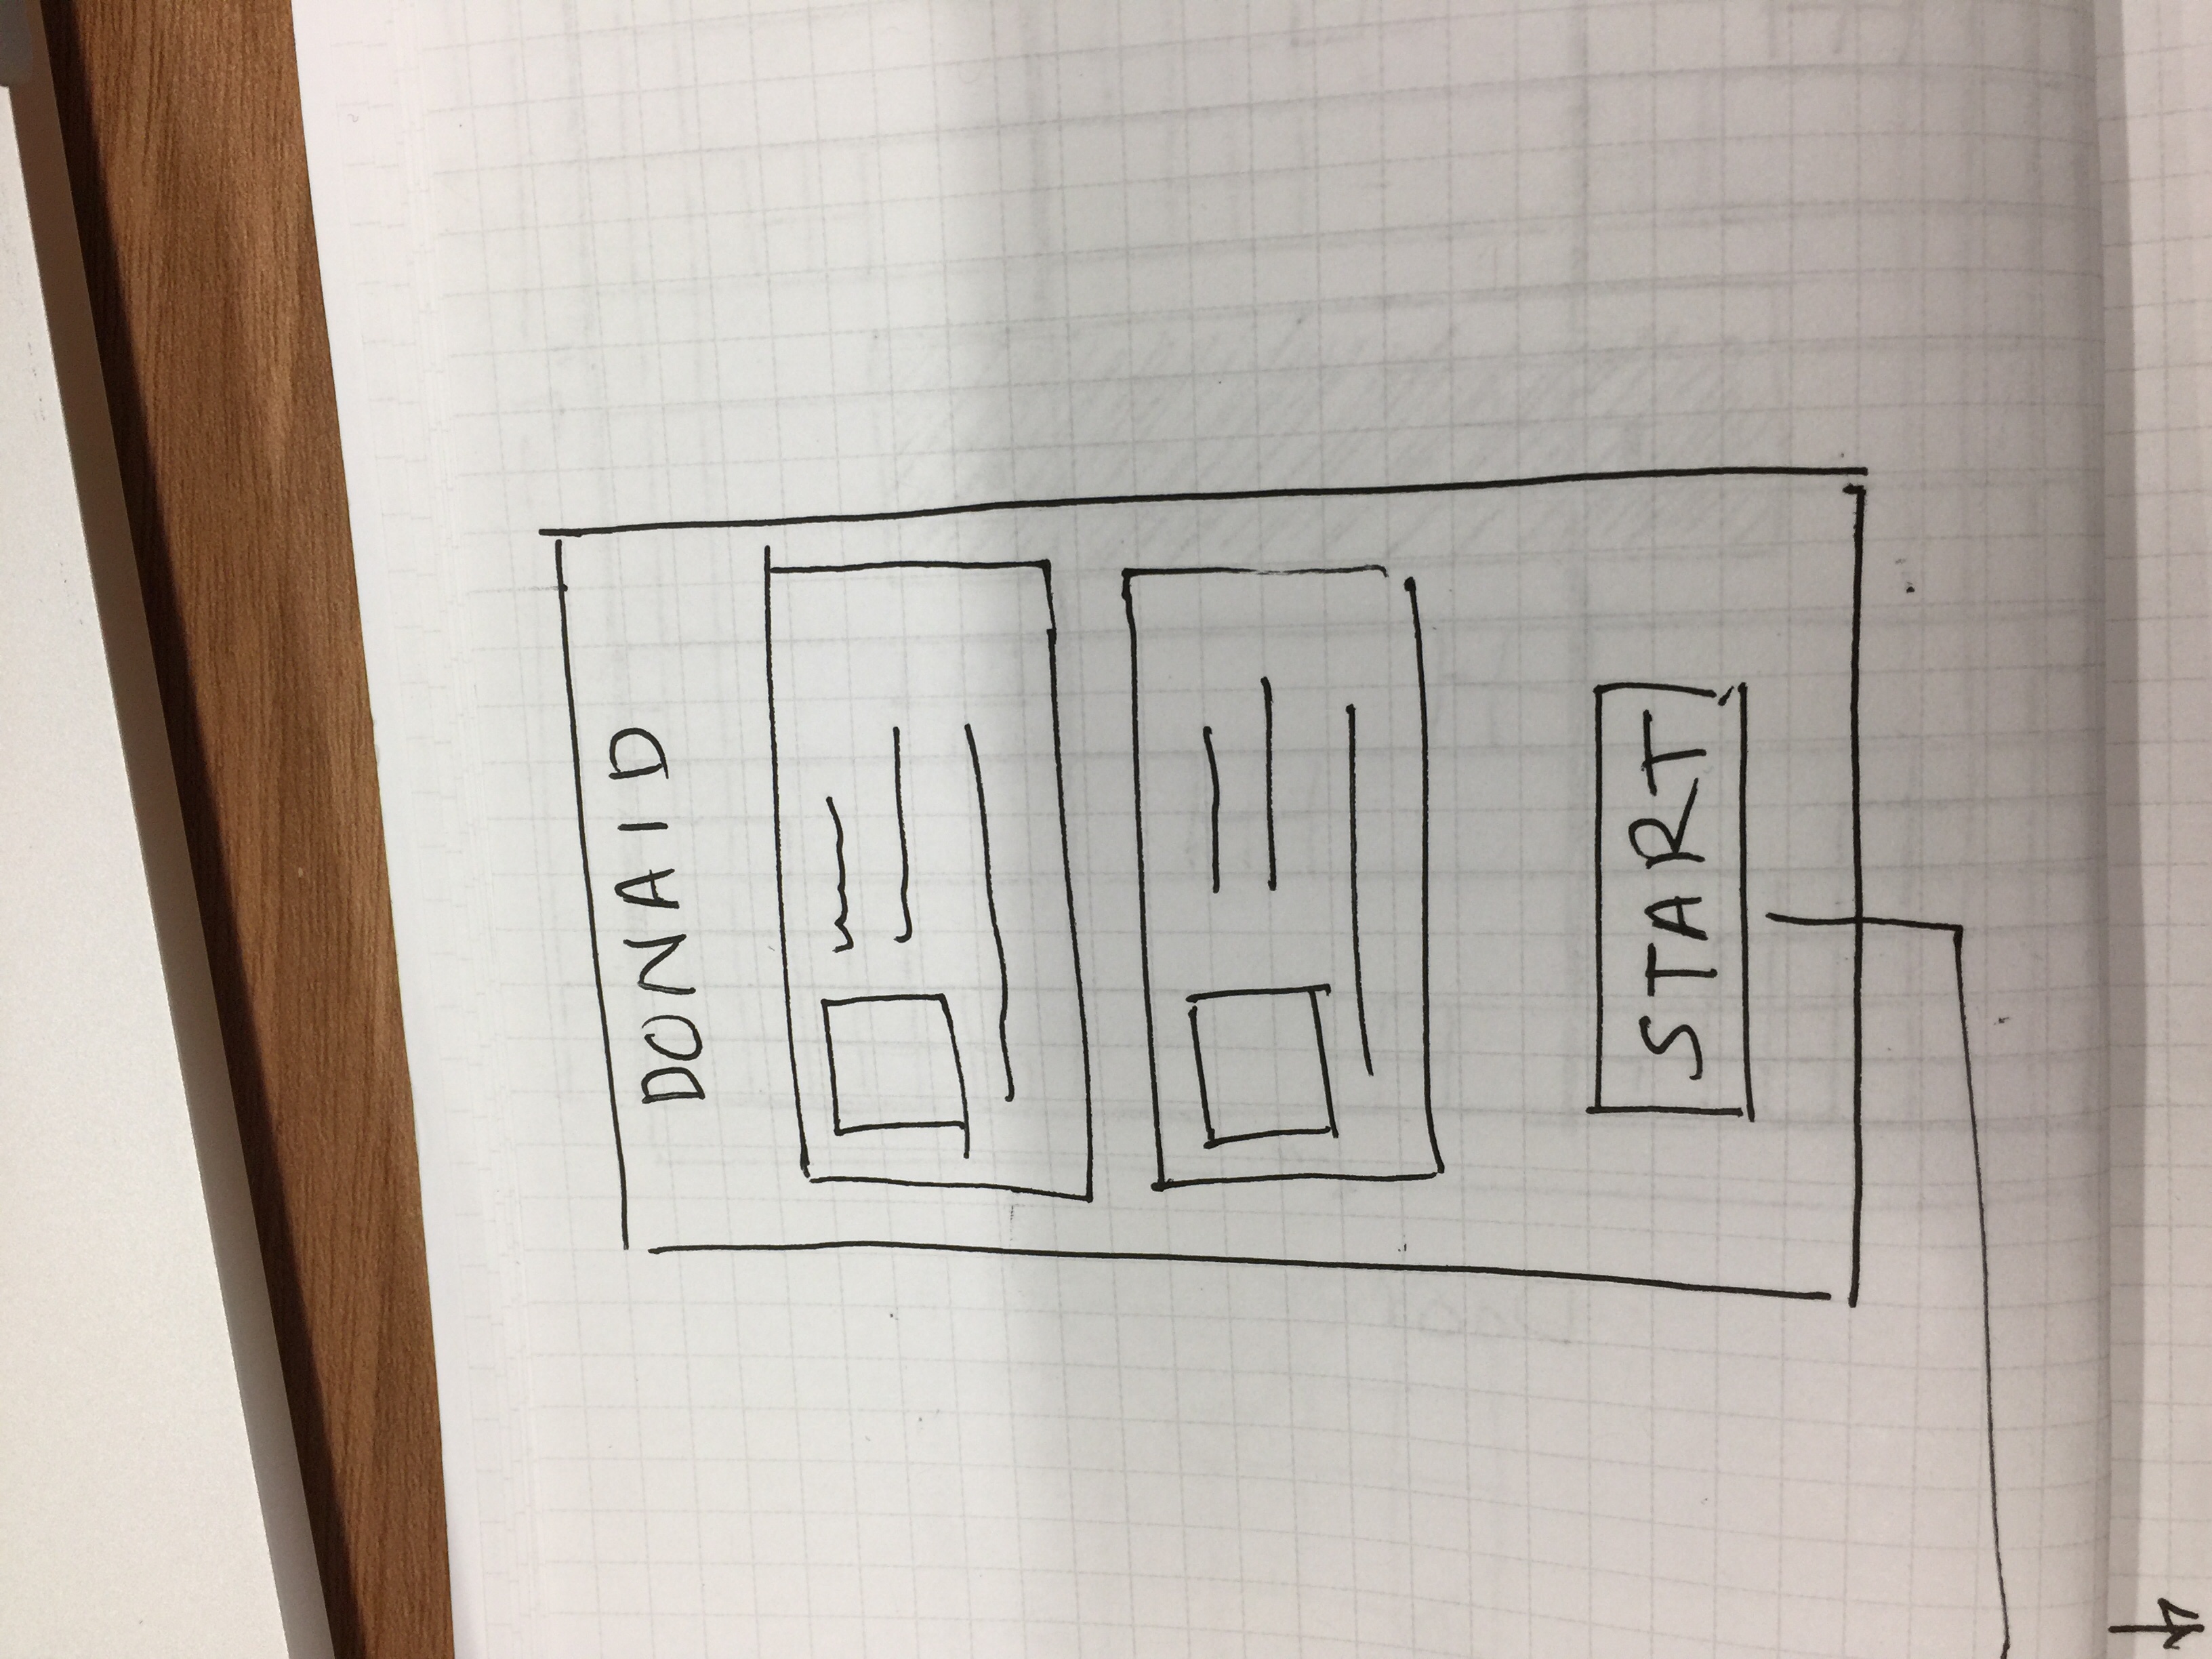 DONAID
START